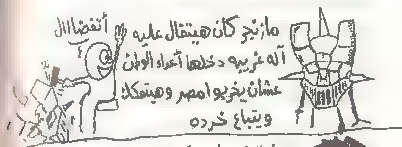 مازنجر كان هيتقال عليه
آله غريبه دخلها أعداء الوطن
عشان يخربوا مصر وهيتفكك
ويتباع خرده
أتفضااال